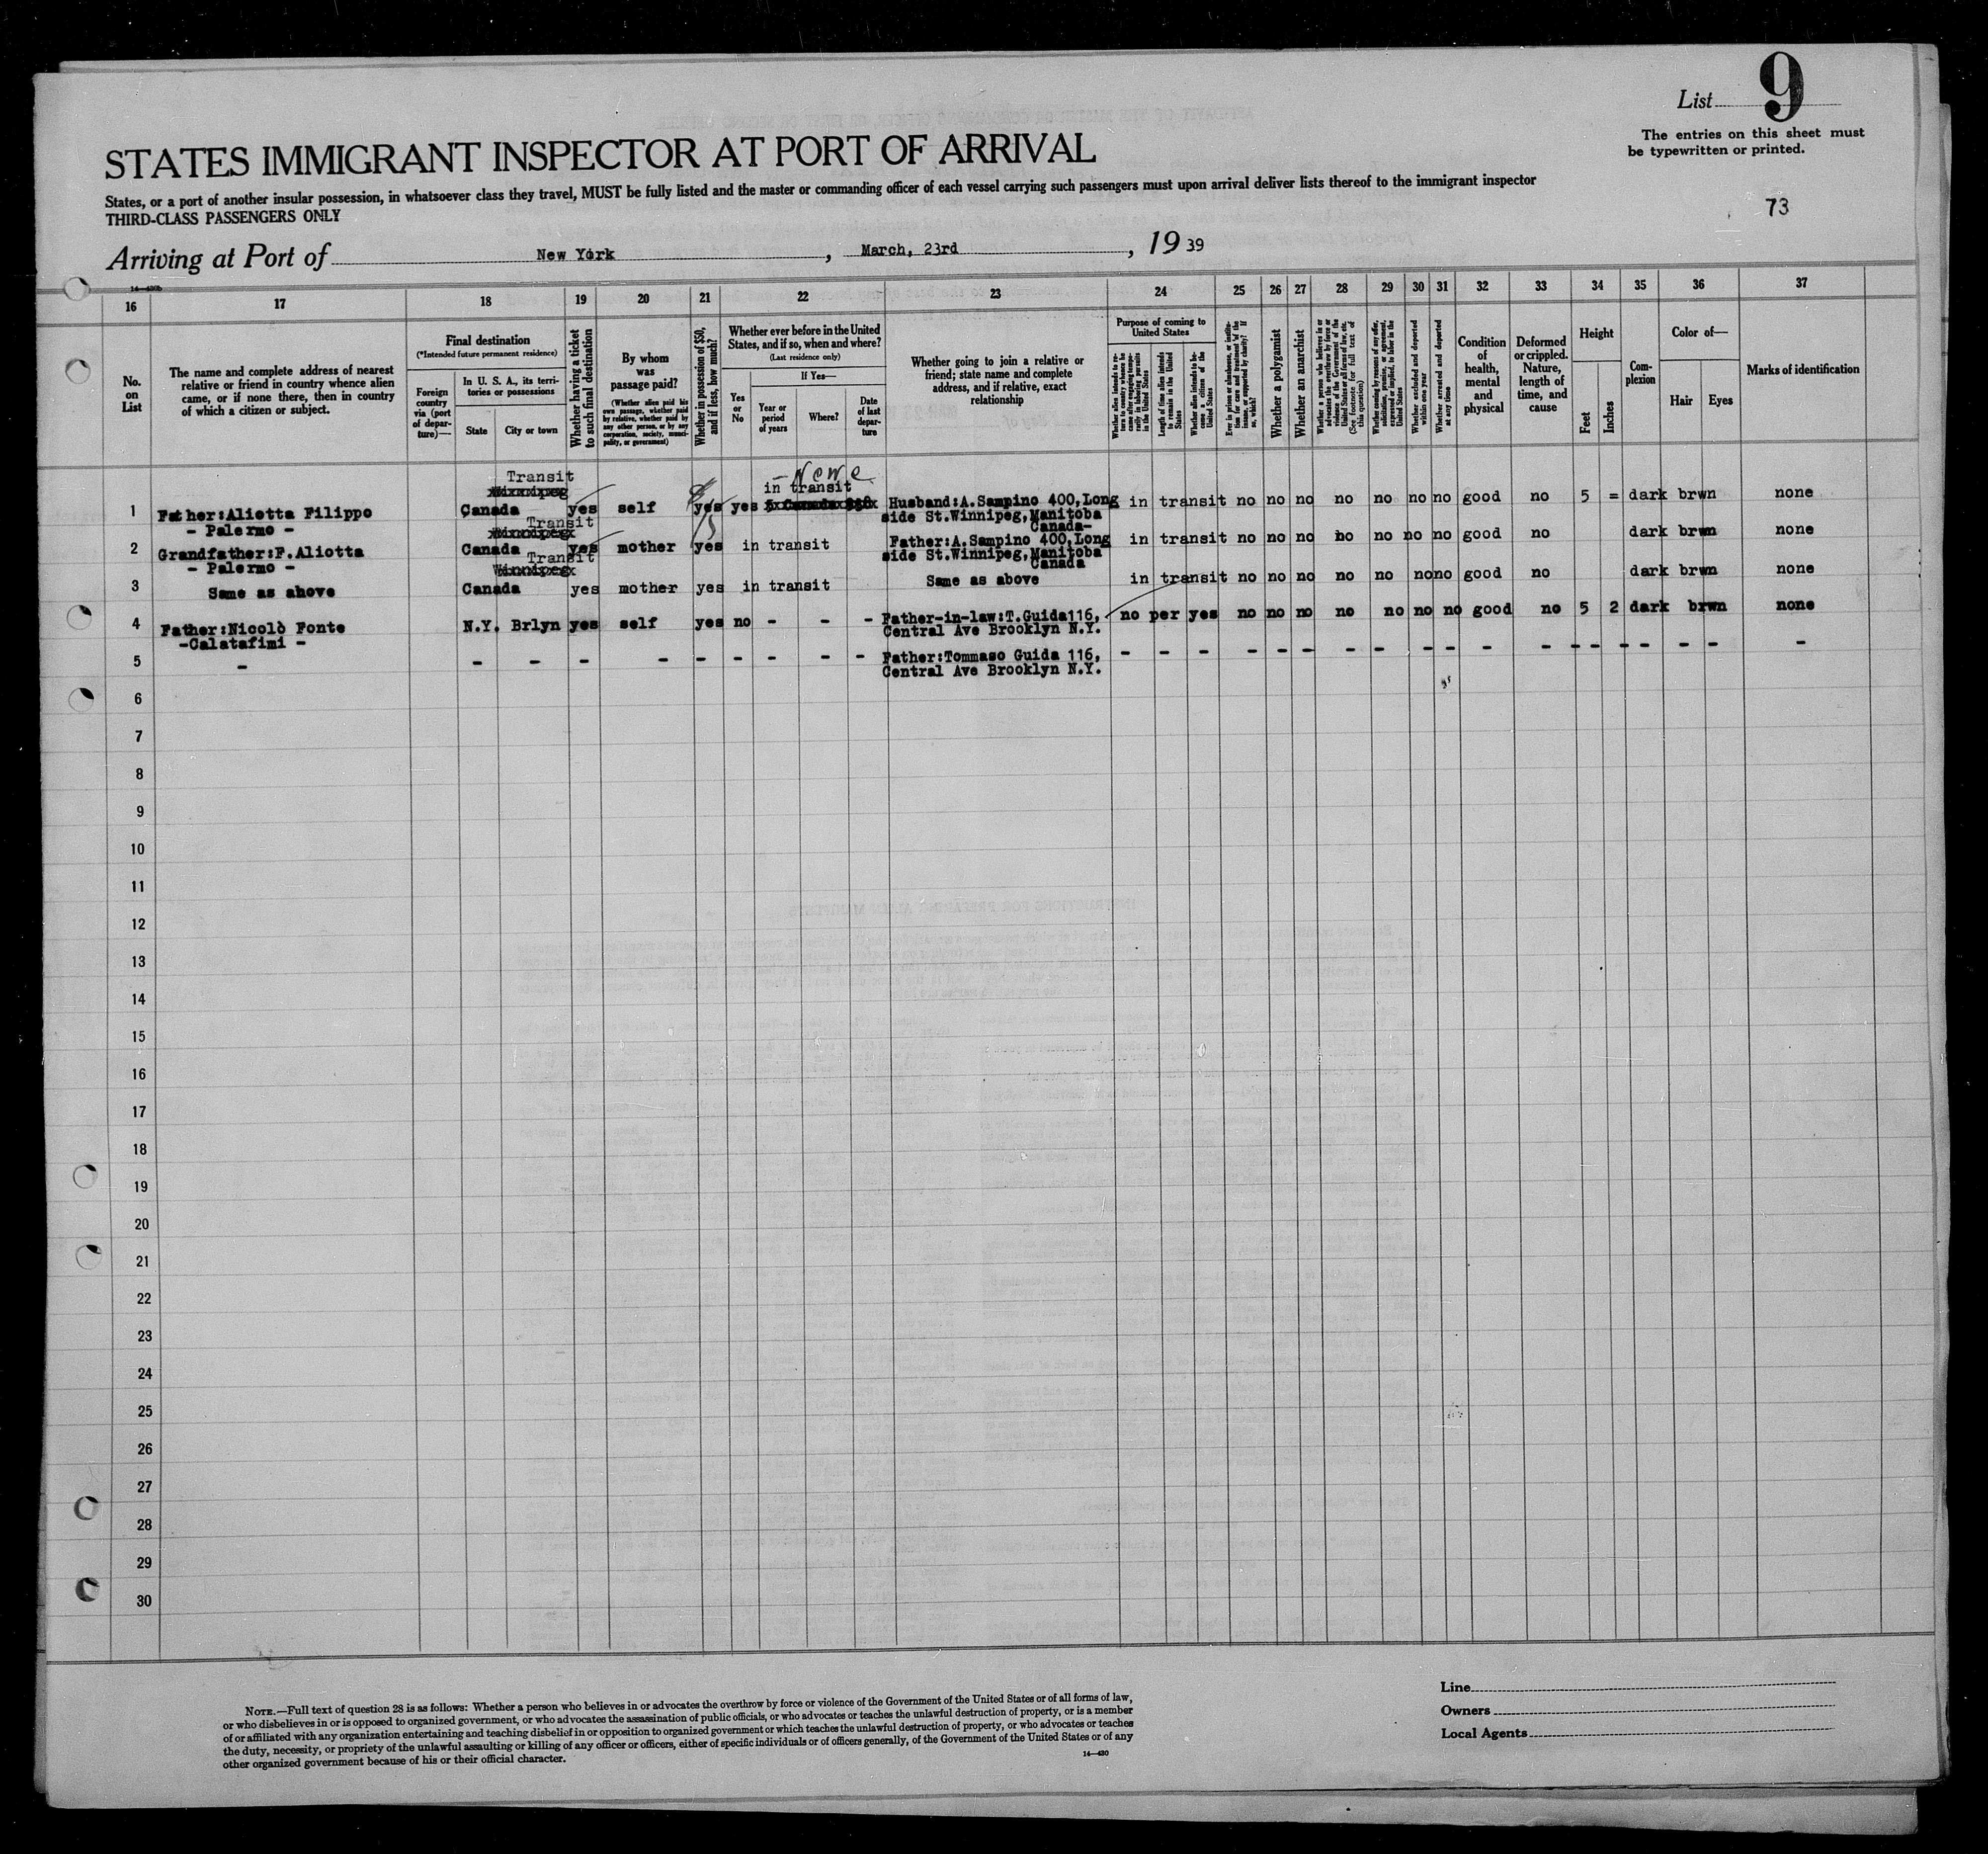 List 9
The entries on this sheet must
be typewritten or printed.
STATES IMMIGRANT INSPECTOR AT PORT OF ARRIVAL
States, or a port of another insular possession, in whatsoever class they travel, MUST be fully listed and the master or commanding officer of each vessel carrying such passengers must upon arrival deliver lists thereof to the immigrant inspector
THIRD-CLASS PASSENGERS ONLY
73
Arriving at Port of New York, March, 23rd, 19 39
14—430b
16 17 18 19 20 21 22 23 24 25 26 27 28 29 30 31 32 33 34 35 36 37
No. on List
The name and complete address of nearest
relative or friend in country whence alien
came, or if none there, then in country
of which a citizen or subject.
Final destination
(*Intended future permanent residence)
Foreign country via (port of departure)—
In U. S. A., its territories or possessions
State
City or town
Whether having a ticket to such final destination
By whom was passage paid?
(Whether alien paid his own passage, whether paid by relative, whether paid by any other person, or by any corporation, society, municipality, or government)
Whether in possession of $50, and if less, how much?
Whether ever before in the United States, and if so, when and where?
(Last residence only)
Yes or No
If Yes—
Year or period of years
Where?
Date of last departure
Whether going to join a relative or
friend; state name and complete
address, and if relative, exact
relationship
Purpose of coming to United States
Whether alien intends to return to country whence he came after engaging temporarily in laboring pursuits in the United States
Length of time alien intends to remain in the United States
Whether alien intends to become a citizen of the United States
Ever in prison or almshouse, or institution for care and treatment of the insane, or supported by charity? If so, which?
Whether a polygamist
Whether an anarchist
Whether a person who believes in or advocates the overthrow by force or violence of the Government of the United States or all forms of law, etc. (See footnote for full text of this question)
Whether coming by reason of any offer, solicitation, promise, or agreement, expressed or implied, to labor in the United States
Whether excluded and deported within one year
Whether arrested and deported at any time
Condition of health, mental and physical
Deformed or crippled. Nature, length of time, and cause
Height
Feet
Inches
Complexion
Color of—
Hair
Eyes
Marks of identification
Transit
None
in transit
1 Father:Aliotta Filippo Canada yes self yes yes Husband:A.Sampino 400,Long in transit no no no no no no no good no 5 = dark brwn none
- Palermo - Transit 15 side St.Winnipeg,Manitoba
Canada-
2 Grandfather:F.Aliotta Canada yes mother yes in transit Father:A.Sampino 400,Long in transit no no no no no no no good no dark brwn none
- Palermo - Transit side St.Winnipeg,Manitoba
Winnipeg Canada
3 Same as above Canada yes mother yes in transit Same as above in transit no no no no no no no good no dark brwn none
4 Father:Nicolò Fonte N.Y. Brlyn yes self yes no - - - Father-in-law:T.Guida116, no per yes no no no no no no no good no 5 2 dark brwn none
-Calatafimi - Central Ave Brooklyn N.Y.
5 - - - - - - - - - - Father:Tommaso Guida 116, - - - - - - - - - - - - - - - - - -
Central Ave Brooklyn N.Y.
6
7
8
9
10
11
12
13
14
15
16
17
18
19
20
21
22
23
24
25
26
27
28
29
30
NOTE.—Full text of question 28 is as follows: Whether a person who believes in or advocates the overthrow by force or violence of the Government of the United States or of all forms of law,
or who disbelieves in or is opposed to organized government, or who advocates the assassination of public officials, or who advocates or teaches the unlawful destruction of property, or is a member
of or affiliated with any organization entertaining and teaching disbelief in or opposition to organized government or which teaches the unlawful destruction of property, or who advocates or teaches
the duty, necessity, or propriety of the unlawful assaulting or killing of any officer or officers, either of specific individuals or of officers generally, of the Government of the United States or of any
other organized government because of his or their official character.
14—430
Line
Owners
Local Agents